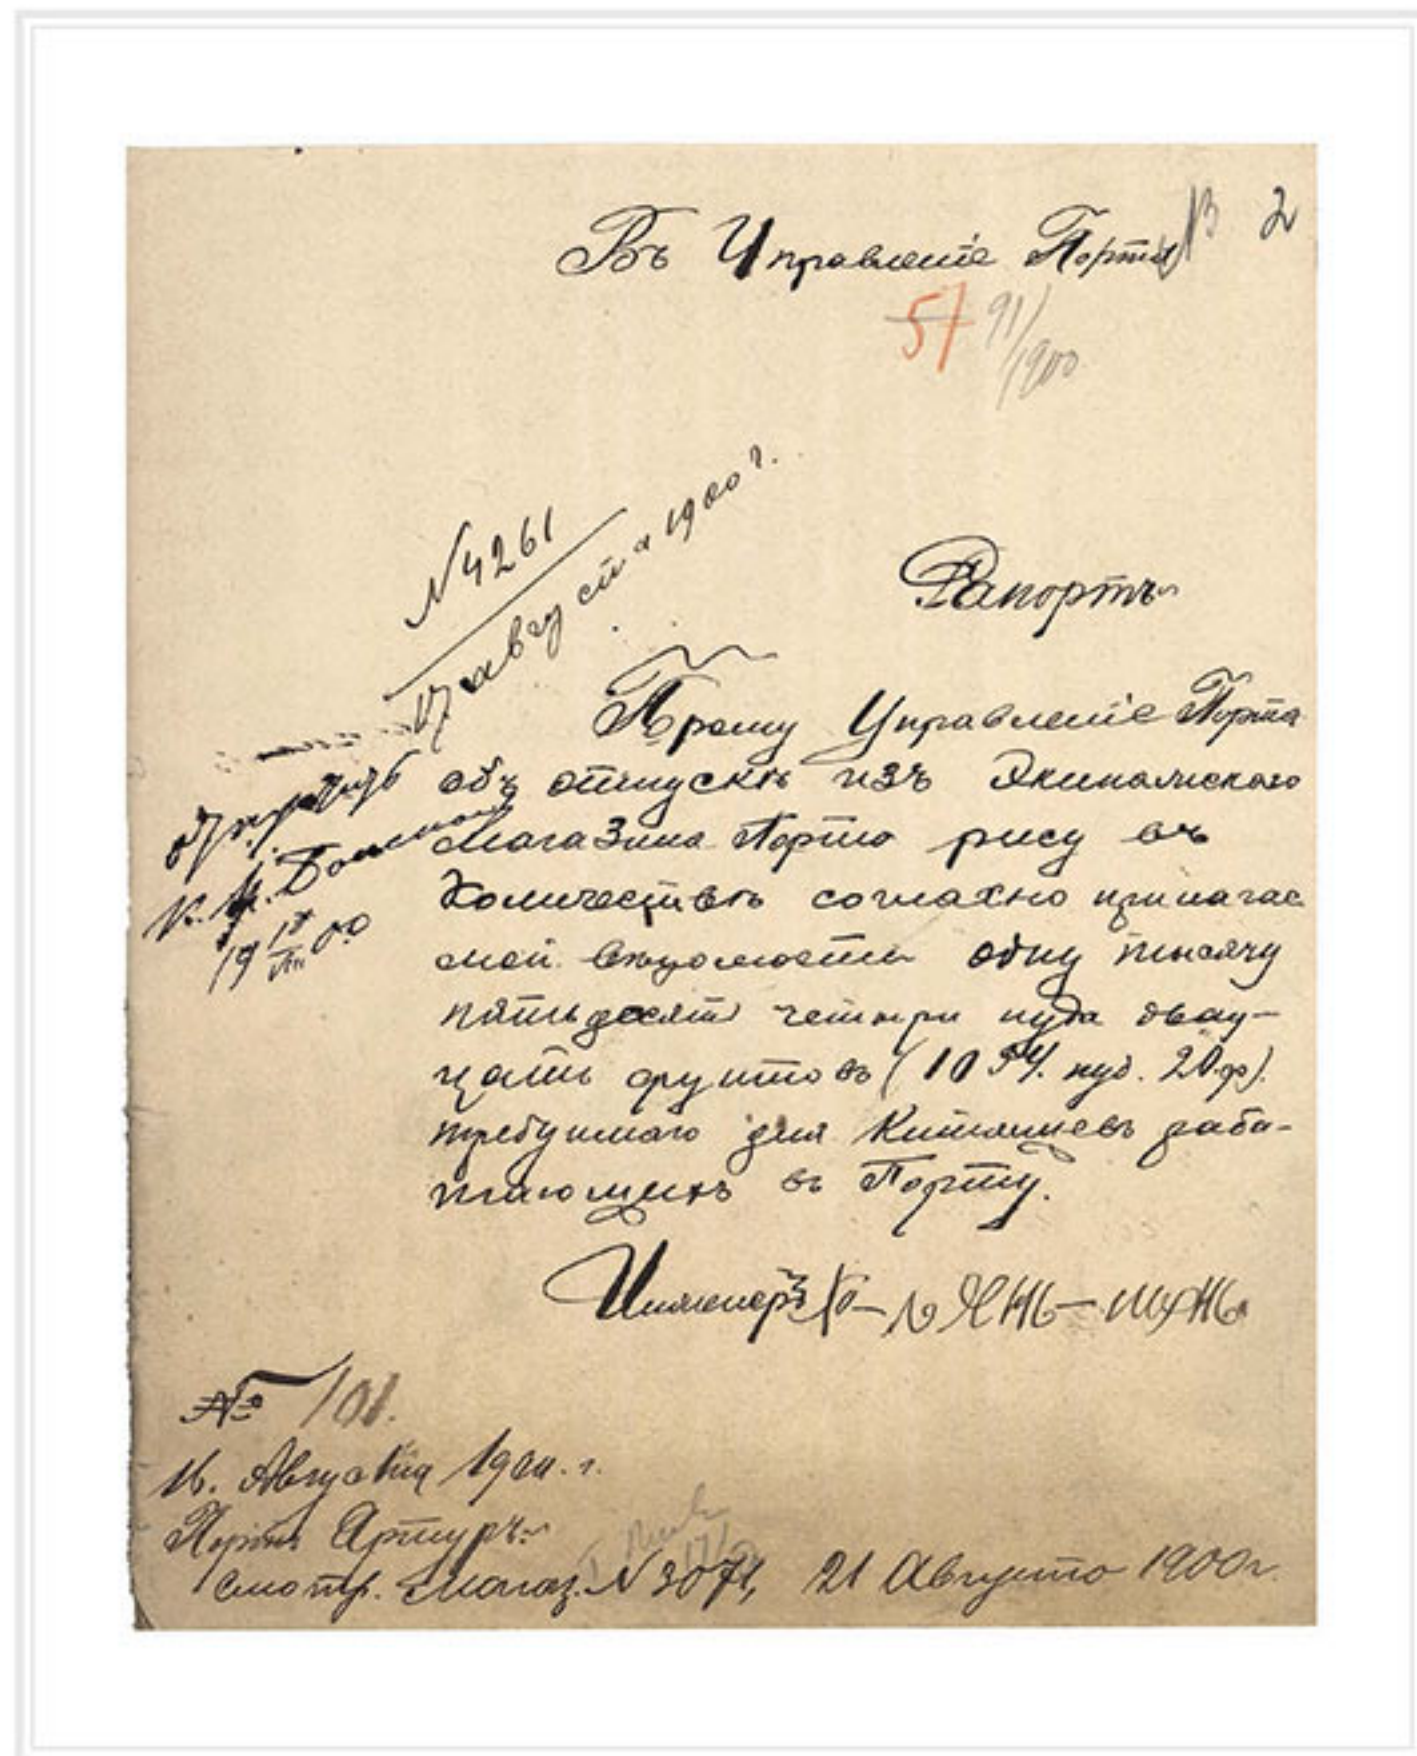 Въ Управленiе Порта
2
57 91/1900
№ 4261
17 августа 1900 г.
Рапортъ
Прошу Управленiе Порта
объ отпускѣ изъ Экипажескаго
Магазина Порта рису въ
количествѣ согласно прилагае
мой вѣдомости одну тысячу
пятьдесят четыри пуда двад-
цать фунтовъ (1054. пуд. 20 ф).
требуимаго для Китайцевъ раба-
тающихъ въ Порту.
Инженеръ
№ 101.
16. Августа 1900. г.
Портъ Артуръ
Смотр. Магаз. № 3071, 21 Августа 1900 г.